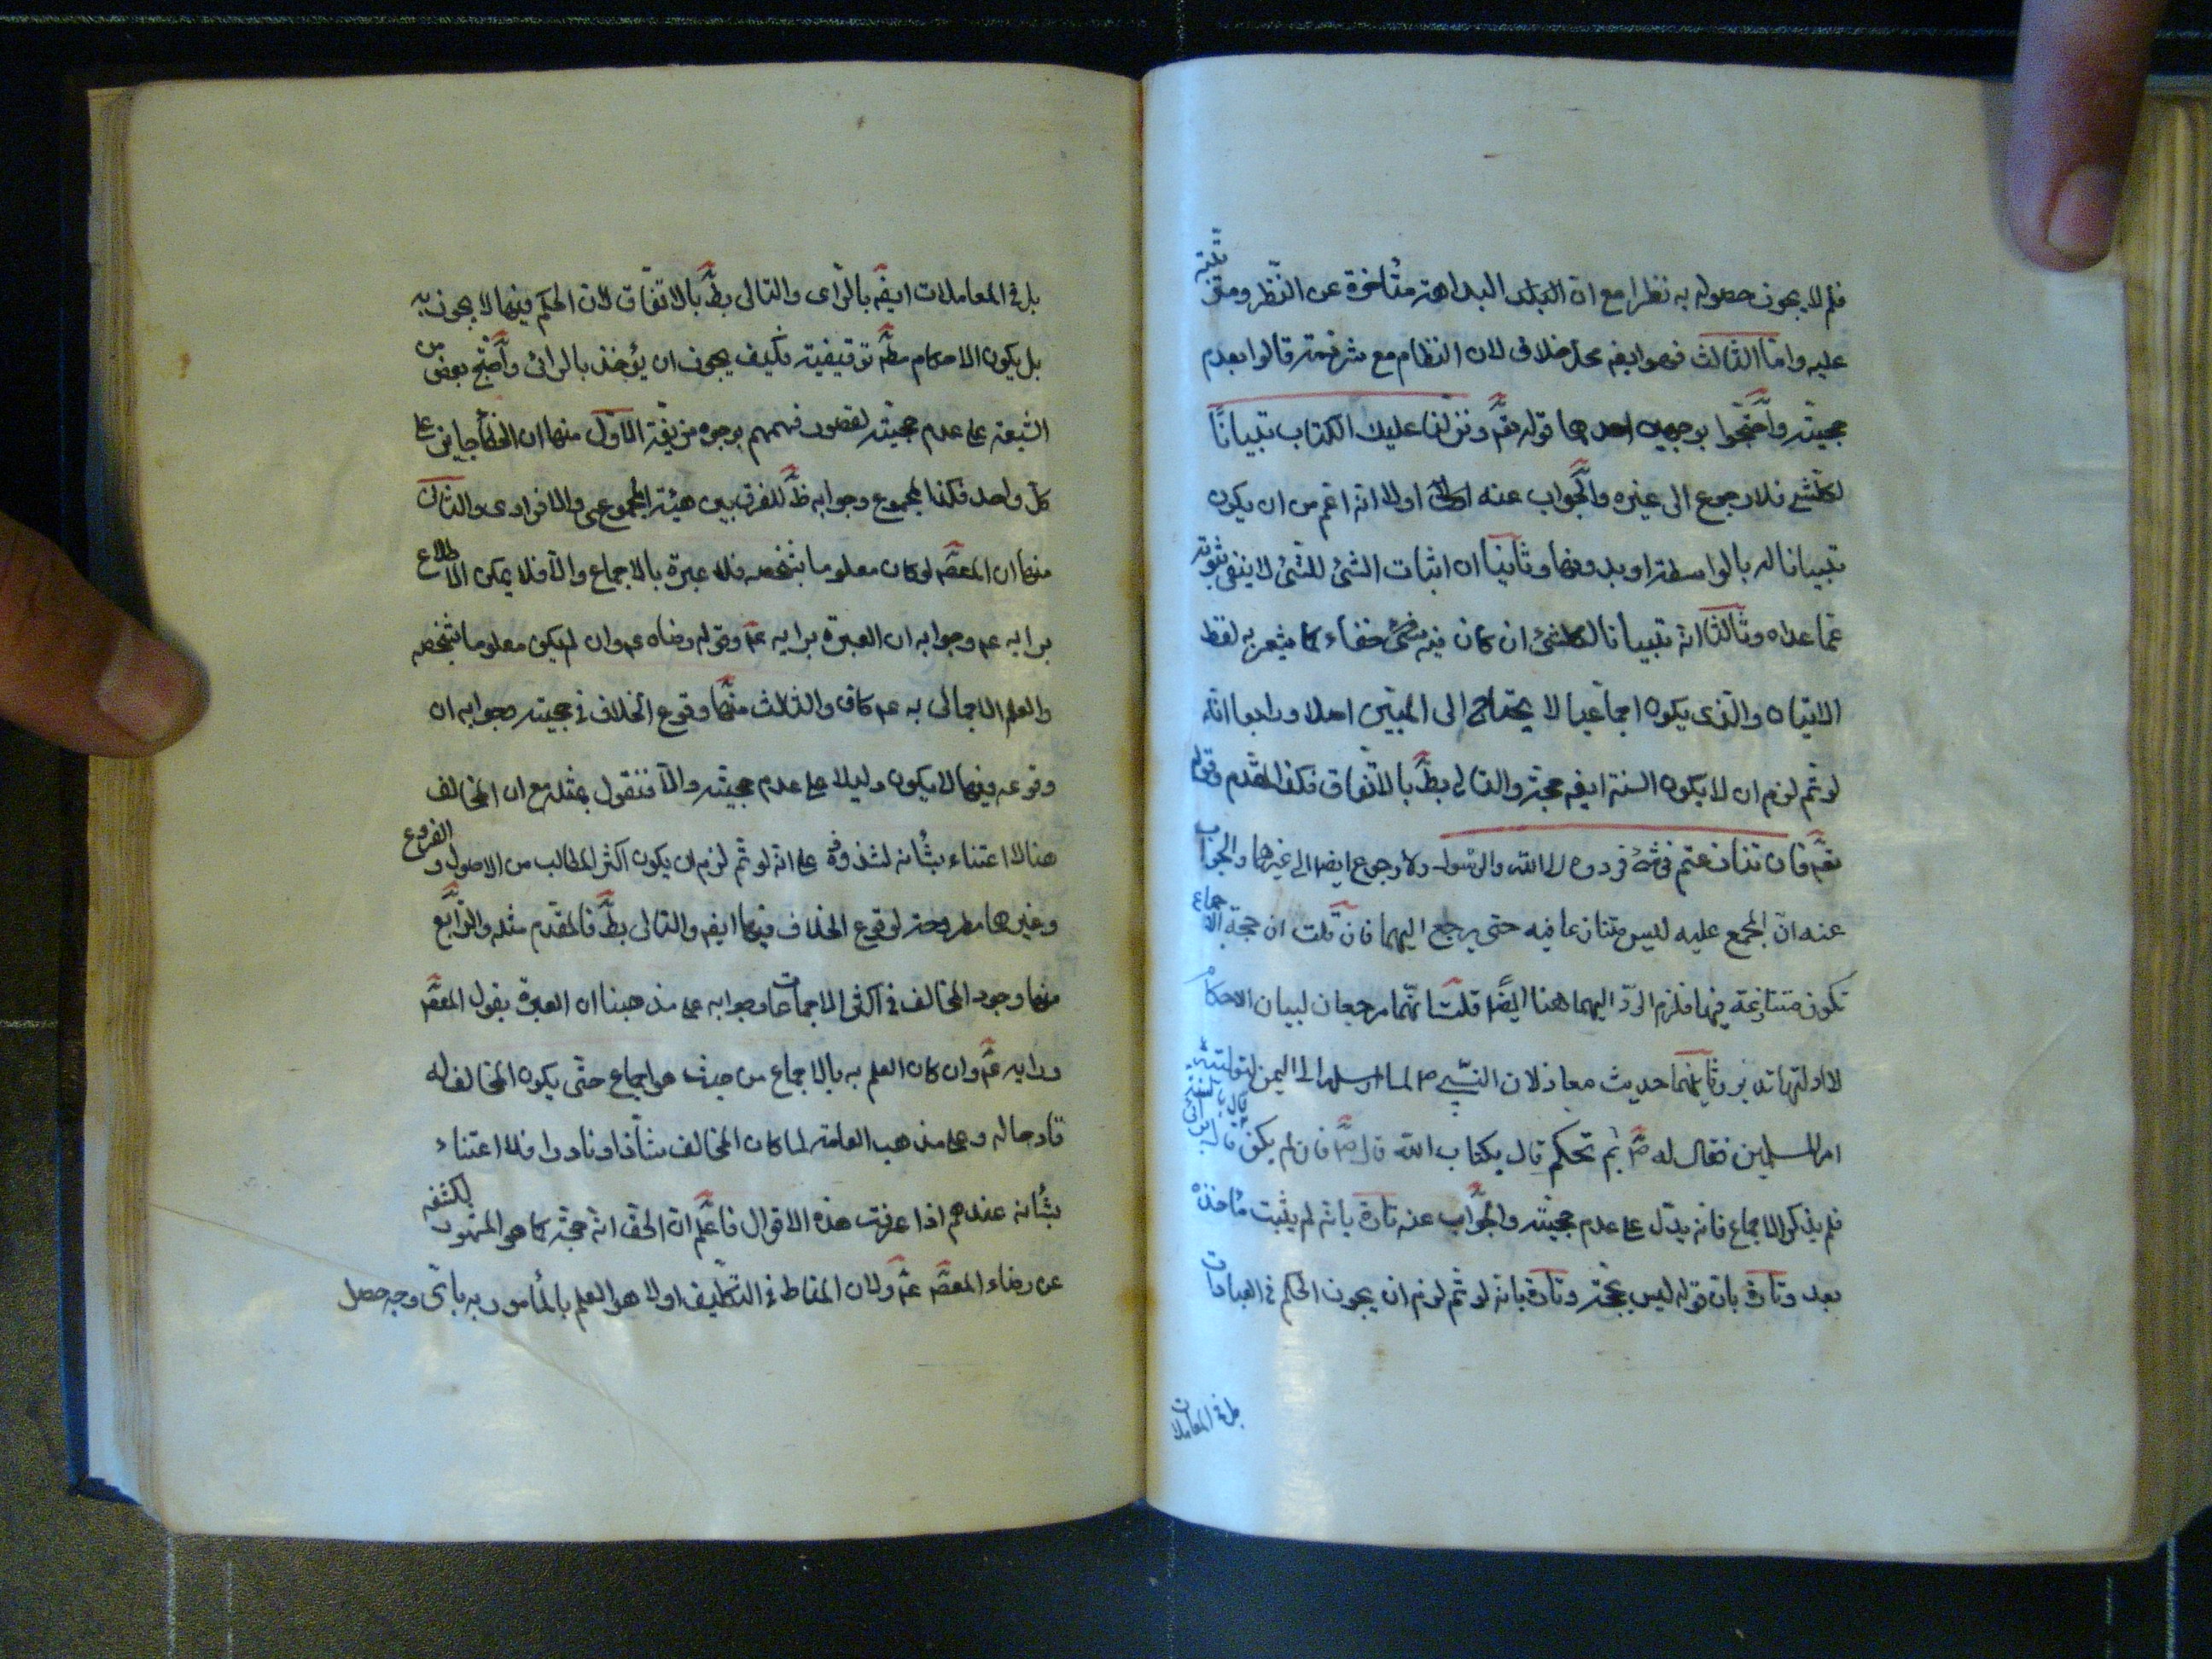 فلم لا يجوز حصوله به نظرا مع ان البداهة متأخرة عن النظر ومتفرعة
عليه واما الثالث فهو ايضه محل خلاف لان النظام مع شرذمة قالوا بعدم
حجيته واحتجوا بوجهين احدهما قوله تعم ونزلنا عليك الكتاب تبيانًا
لكلشئ فلا رجوع الى غيره والجواب عنه اولا انه اعم من ان يكون
تبيانا له بالواسطة او بدونها وثانيا ان اثبات الشئ للشئ لا ينفى ثبوته
عما عداه وثالثا انه تبيانا لكلشئ ان كان فيه خفاء كما يشعر به لفظ
التبيان والذى يكون اجماعيا لا يحتاج الى المبين اصلا ورابعا انه
لو تم لزم ان لا يكون السنة ايضه حجة والتالى بط بالاتفاق فكذا المقدم وقوله
تعم فان تنازعتم فى شئ فردوه الى الله والرسول ولا رجوع ايضا الى غيرهما والجواب
عنه ان المجمع عليه ليس متنازعا فيه حتى يرجع اليهما فان قلت ان حجية الاجماع
تكون متنازعة فيها فلزم الرد اليهما هنا ايضا قلت انهما مرجعان لبيان الاحكام
لا ادلتها تدبر وثانيهما حديث معاذ لان النبى ص لما ارسله الى اليمن
امر المسلمين فقال له ص بم تحكم قال بكتاب الله قال ص فان لم يكن قال بالسنة قال
فلم يذكر الاجماع فانه يدل على عدم حجيته والجواب عنه تارة بانه لم يثبت مأخذه
بعد وتارة بان قوله ليس بحجة وتارة بانه لو تم لزم ان يجوز الحكم فى العبادات
بل فى المعاملات
بل فى المعاملات ايضه بالراى والتالى بط بالاتفاق لان الحكم فيهما لا يجوز به
بل يكون الاحكام مط توقيفية فكيف يجوز ان يؤخذ بالرائ واحتج بعض من
الشيعة على عدم حجيته لقصور فهمهم بوجوه مزيفة الاول منها ان الخطأ جايز على
كل واحد فكذا المجموع وجوابه ظ للفرق بين هيئة المجموعى والافرادى والثانى
منها ان المعصم لو كان معلوما بشخصه فلا عبرة بالاجماع والا فلا يمكن الاطلاع
برايه عم وجوابه ان العبرة برايه عم وقوله ورضاه عم وان لم يكن معلوما بشخصه
والعلم الاجمالى به عم كاف والثالث منها وقوع الخلاف فى حجيته وجوابه ان
وقوعه فيها لا يكون دليلا على عدم حجيته والا فنقول بمثله مع ان المخالف
هنا لا اعتناء بشأنه لشذوذه على انه لو تم لزم ان يكون اكثر المطالب من الاصول و الفروع
وغيرها مطروحة لوقوع الخلاف فيها ايضه والتالى بط فالمقدم مثله والرابع
منها وجود المخالف فى اكثر الاجماعات وجوابه على مذهبنا ان العبرة بقول المعصم
ورايه عم وان كان العلم به بالاجماع من حيث هو اجماع حتى يكون المخالف له
قادحا له وعلى مذهب العامة لما كان المخالف شاذا او نادرا فلا اعتناء
بشأنه عندهم اذا عرفت هذه الاقوال فاعلم ان الحق انه حجة كما هو المشهور لكشفه
عن رضاء المعصم عم ولان المناط فى التكليف اولا هو العلم بالمأمور به باى وجه حصل